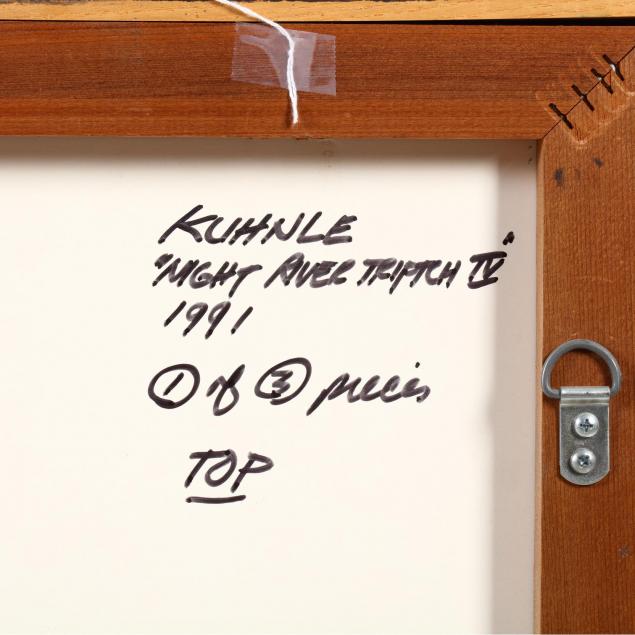 KUHNLE
"NIGHT RIVER TRIPTCH IV"
1991
1 of 3 pieces
TOP